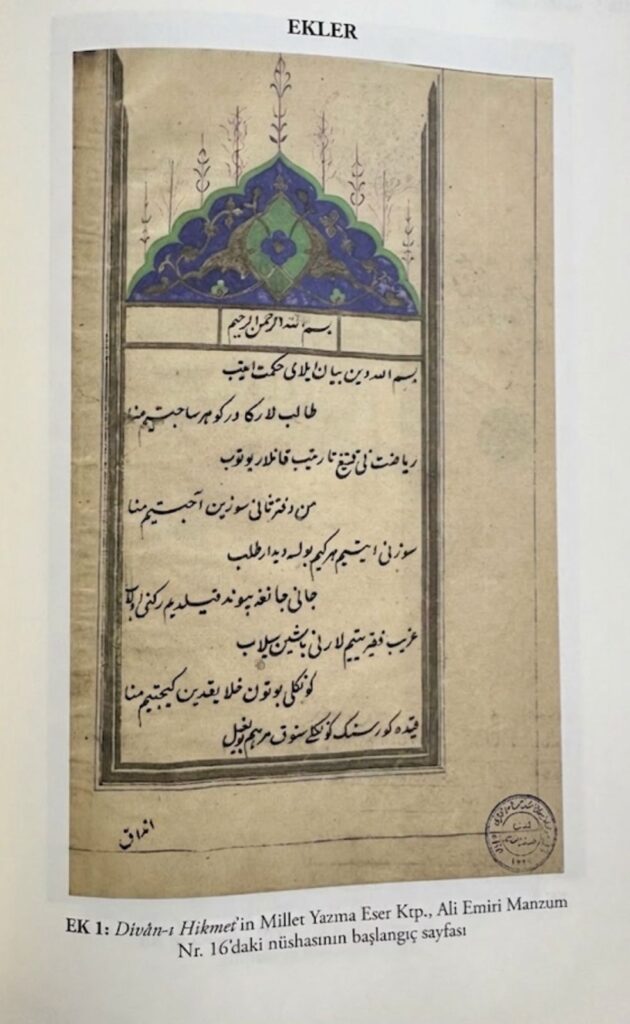 EKLER
بسم الله الرحمن الرحیم
بسم الله دین بیان ایلای حکمت ایتیب
طالب لارکا در کوهر ساچتیم منا
ریاضت نی قتیغ تارتیب قانلار یوتوب
من دفتر ثانی سوزین آچتیم منا
سوزنی ایتیم هر کیم بولسه دیدار طلب
جانی جانغه پیوند قیلدیم رکنی
غریب فقیر یتیم لارنی باشین سیلاب
کونکلی بوتون خلایقدین کیچتیم منا
قیده کورسنک کونکلی سنوق مرهم بولغیل
انداق
EK 1: Dîvân-ı Hikmet'in Millet Yazma Eser Ktp., Ali Emiri Manzum
Nr. 16'daki nüshasının başlangıç sayfası